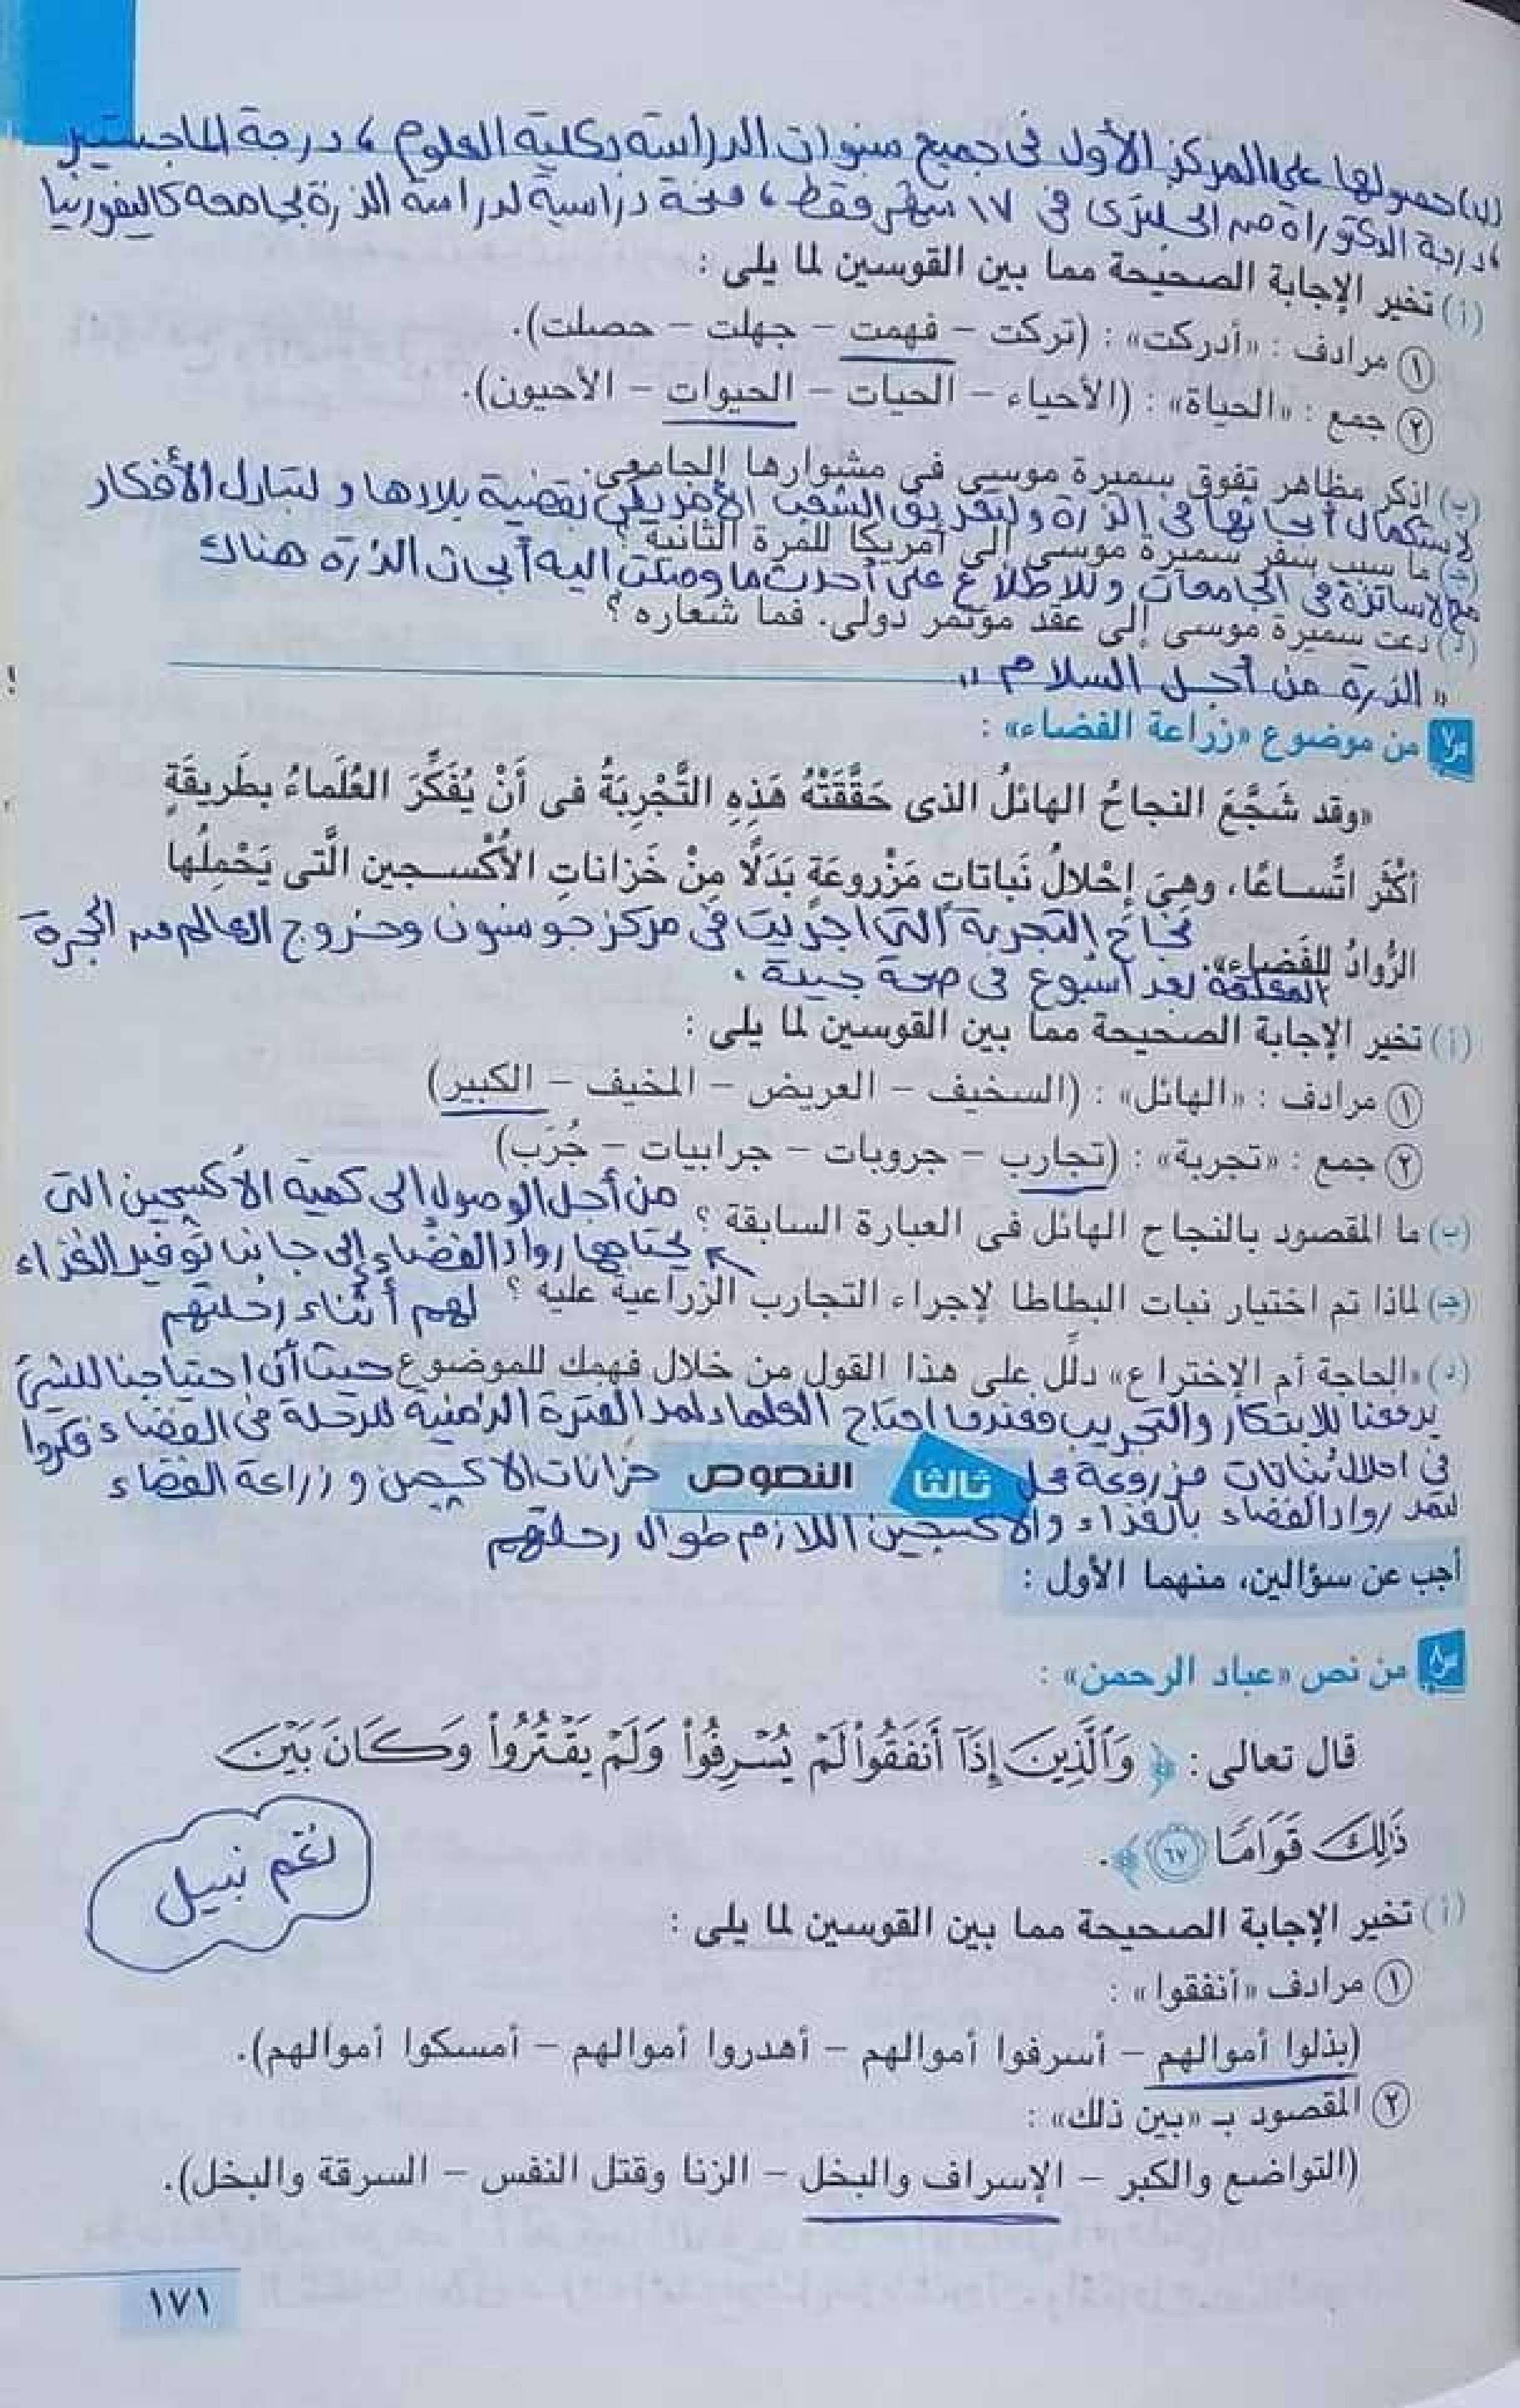 (ب) حصولها على المركز الأول فى جميع سنوات الدراسة بكلية العلوم ، درجة الماجستير
، درجة الدكتوراة من انجلترى فى ١٧ شهر فقط ، منحة دراسية لدراسة الذرة بجامعة كاليفورنيا
(أ) تخير الإجابة الصحيحة مما بين القوسين لما يلى :
١ مرادف : «أدركت» : (تركت – فهمت – جهلت – حصلت).
٢ جمع : «الحياة» : (الأحياء – الحيات – الحيوات – الأحيون).
(ب) اذكر مظاهر تفوق سميرة موسى فى مشوارها الجامعى.
لاستكمال أبحاثها فى الذرة ولتعريف الشعب الأمريكى بقضية بلادها ولتبادل الأفكار
(جـ) ما سبب سفر سميرة موسى إلى أمريكا للمرة الثانية ؟
مع الاساتذة فى الجامعات وللاطلاع على أحدث ما وصلت اليه أبحاث الذرة هناك
(د) دعت سميرة موسى إلى عقد مؤتمر دولى. فما شعاره ؟
" الذرة من أجل السلام "
س٧ من موضوع «زراعة الفضاء» :
«وقد شَجَّعَ النجاحُ الهائلُ الذى حَقَّقَتْهُ هَذِهِ التَّجْرِبَةُ فى أَنْ يُفَكِّرَ العُلَماءُ بِطَريقَةٍ
أكْثَر اتِّساعًا، وهِيَ إحْلالُ نَباتاتٍ مَزْروعَةٍ بَدَلًا مِنْ خَزاناتِ الأُكْسجين الَّتى يَحْمِلُها
نجاح التجربة التى اجريت فى مركز جونسون وخروج العالم من الحجرة
الرُّوادُ للفَضاءِ».
المغلقة بعد أسبوع فى صحة جيدة .
(أ) تخير الإجابة الصحيحة مما بين القوسين لما يلى :
١ مرادف : «الهائل» : (السخيف – العريض – المخيف – الكبير)
٢ جمع : «تجربة» : (تجارب – جروبات – جرابيات – جُرَب)
من أجل الوصول الى كمية الأكسجين التى
(ب) ما المقصود بالنجاح الهائل فى العبارة السابقة ؟
يحتاجها رواد الفضاء إلى جانب توفير الغذاء
(جـ) لماذا تم اختيار نبات البطاطا لإجراء التجارب الزراعية عليه ؟
لهم أثناء رحلتهم
(د) «الحاجة أم الإختراع» دلِّل على هذا القول من خلال فهمك للموضوع حيث أن احتياجنا للشئ
يدفعنا للابتكار والتجريب فعندما احتاج العلماء لمد الفترة الزمنية للرحلة فى الفضاء فكروا
فى احلال نباتات مزروعة محل خزانات الاكسجين وزراعة الفضاء
ثالثا النصوص
لتمد رواد الفضاء بالغذاء والاكسجين اللازم طوال رحلتهم
أجب عن سؤالين، منهما الأول :
س٨ من نص «عباد الرحمن» :
قال تعالى : ﴿ وَٱلَّذِينَ إِذَآ أَنفَقُواْ لَمْ يُسْرِفُواْ وَلَمْ يَقْتُرُواْ وَكَانَ بَيْنَ
ذَٰلِكَ قَوَامًا ٦٧ ﴾.
نغم نبيل
(أ) تخير الإجابة الصحيحة مما بين القوسين لما يلى :
١ مرادف «أنفقوا» :
(بذلوا أموالهم – أسرفوا أموالهم – أهدروا أموالهم – أمسكوا أموالهم).
٢ المقصود بـ «بين ذلك» :
(التواضع والكبر – الإسراف والبخل – الزنا وقتل النفس – السرقة والبخل).
١٧١